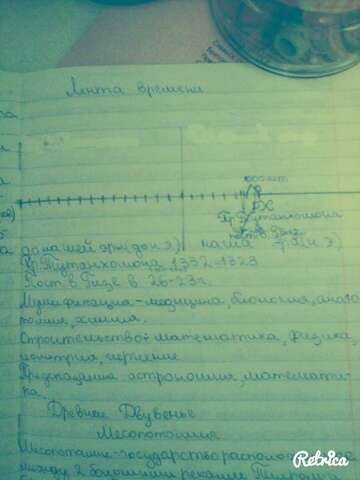 Линта времени
1000 лет
IX
Пр. Тутанхомона
до нашей эры (до н.э) наша эра (н.э)
Пр. Тутанхомона 1332-1323
Пост. в Гизе в 26-23 г.
Мумификация - медицина, биология, анато-
мия, химия.
Строительство: математика, физика,
геометрия, черчение
Предсказания - астрономия, математи-
ка.
Древнее Двуречье
Месопотамия
Месопотамия - государство располож
между 2 большими реками Тигром и
Retrica